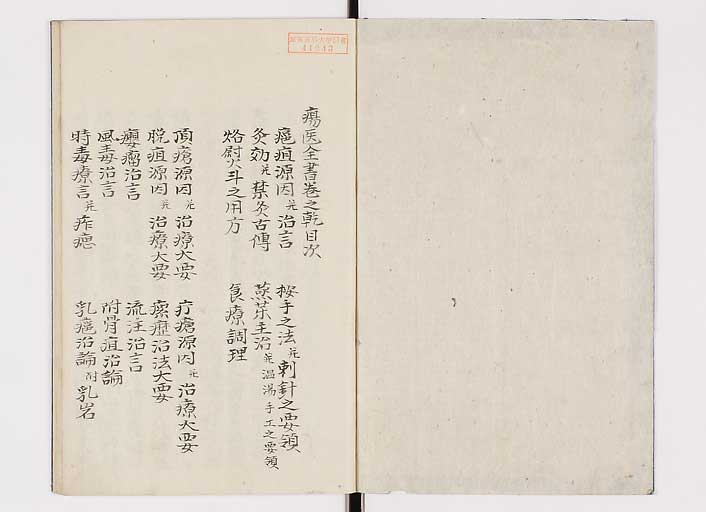 瘍医全書巻之乾目次
瘡疽源因并治言 按手之法并刺針之要領
灸効并禁灸古傳 蒸茱主治并温湯手工之要領
烙熨火斗之用方 食療調理
頂瘡源因并治療大要 疔瘡源因并治療大要
脱疽源因并治療大要 瘰癧治法大要
癭瘤治言 流注治言
風毒治言 附骨疽治論
時毒療言并痄疤 乳癌治論附乳岩
41043